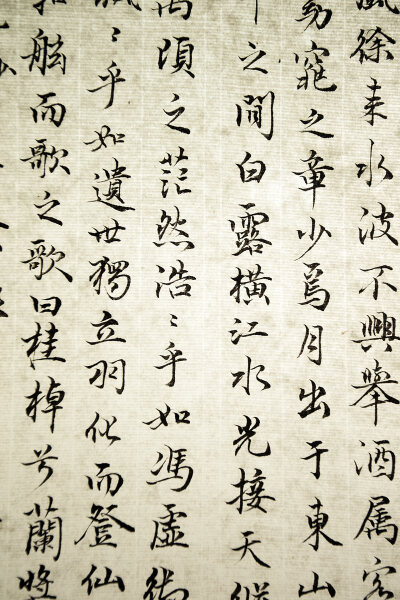 風徐来水波不興舉酒属客
窈窕之章少焉月出于東山
之間白露橫江水光接天縱
萬頃之茫然浩〻乎如馮虛御
飄〻乎如遺世獨立羽化而登仙
扣舷而歌之歌曰桂棹兮蘭槳